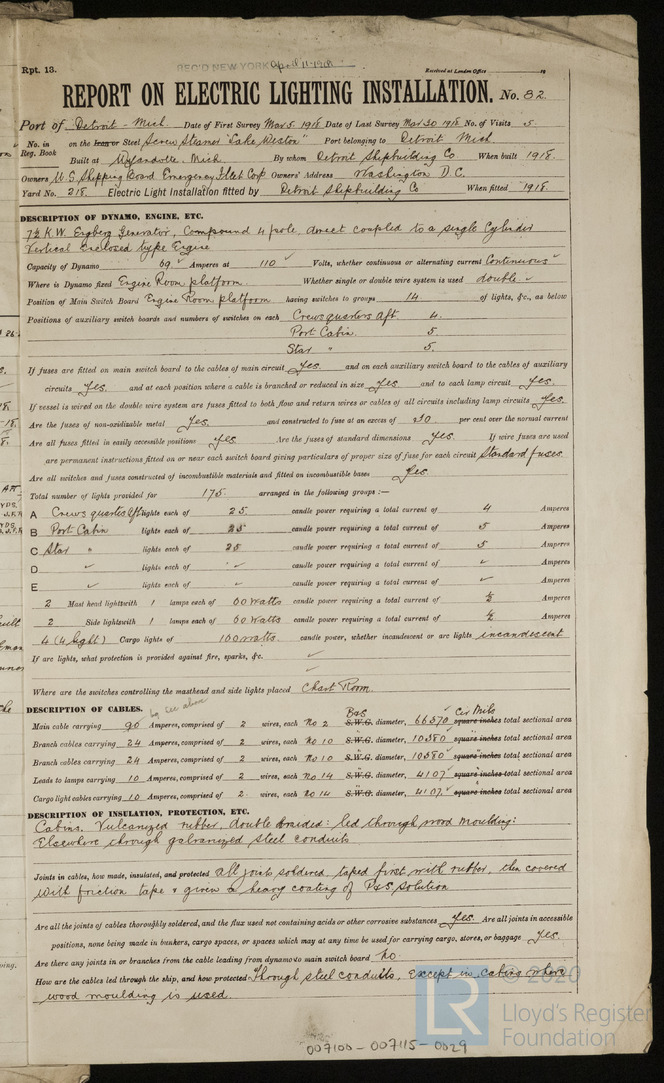 Rpt. 13.
REC'D NEW YORK April 11-1918
Received at London Office 19
REPORT ON ELECTRIC LIGHTING INSTALLATION. No. 82.
Port of Detroit - Mich. Date of First Survey Mar 5. 1918 Date of Last Survey Mar 30 1918 No. of Visits 5.
No. in Reg. Book on the Iron or Steel Screw Steamer "Lake Weston" Port belonging to Detroit Mich
Built at Wyandotte. Mich. By whom Detroit Shipbuilding Co When built 1918.
Owners U.S. Shipping Board Emergency Fleet Corp Owners' Address Washington D.C.
Yard No. 218. Electric Light Installation fitted by Detroit Shipbuilding Co When fitted 1918.
DESCRIPTION OF DYNAMO, ENGINE, ETC.
7½ K.W. Engberg Generator, Compound 4 pole, direct coupled to a single Cylinder
Vertical Enclosed type Engine
Capacity of Dynamo 69 Amperes at 110 Volts, whether continuous or alternating current Continuous
Where is Dynamo fixed Engine Room platform. Whether single or double wire system is used double.
Position of Main Switch Board Engine Room platform having switches to groups 14 of lights, &c., as below
Positions of auxiliary switch boards and numbers of switches on each Crews quarters Aft. 4.
Port Cabin. 5.
Star " 5.
If fuses are fitted on main switch board to the cables of main circuit Yes. and on each auxiliary switch board to the cables of auxiliary
circuits Yes. and at each position where a cable is branched or reduced in size Yes and to each lamp circuit Yes.
If vessel is wired on the double wire system are fuses fitted to both flow and return wires or cables of all circuits including lamp circuits Yes.
Are the fuses of non-oxidizable metal Yes. and constructed to fuse at an excess of 50 per cent over the normal current
Are all fuses fitted in easily accessible positions Yes Are the fuses of standard dimensions Yes. If wire fuses are used
are permanent instructions fitted on or near each switch board giving particulars of proper size of fuse for each circuit Standard fuses.
Are all switches and fuses constructed of incombustible materials and fitted on incombustible bases Yes
Total number of lights provided for 175. arranged in the following groups :—
A Crews quarters Aft lights each of 25 candle power requiring a total current of 4 Amperes
B Port Cabin lights each of 25 candle power requiring a total current of 5 Amperes
C Star " lights each of 25 candle power requiring a total current of 5 Amperes
D lights each of candle power requiring a total current of Amperes
E lights each of candle power requiring a total current of Amperes
2 Mast head lights with 1 lamps each of 60 watts candle power requiring a total current of ½ Amperes
2 Side lights with 1 lamps each of 60 watts candle power requiring a total current of ½ Amperes
4 (4 light) Cargo lights of 100 watts. candle power, whether incandescent or arc lights incandescent
If arc lights, what protection is provided against fire, sparks, &c.
Where are the switches controlling the masthead and side lights placed Chart Room.
DESCRIPTION OF CABLES.
B&S Cir Mils
Main cable carrying 90 Amperes, comprised of 2 wires, each No 2 S.W.G. diameter, 66570 square inches total sectional area
Branch cables carrying 24 Amperes, comprised of 2 wires, each No 10 S.W.G. diameter, 10380 square inches total sectional area
Branch cables carrying 24 Amperes, comprised of 2 wires, each No 10 S.W.G. diameter, 10380 square inches total sectional area
Leads to lamps carrying 10 Amperes, comprised of 2 wires, each No 14 S.W.G. diameter, 4107 square inches total sectional area
Cargo light cables carrying 10 Amperes, comprised of 2 wires, each No 14 S.W.G. diameter, 4107 square inches total sectional area
DESCRIPTION OF INSULATION, PROTECTION, ETC.
Cabins. Vulcanized rubber, double braided: led through wood moulding:
Elsewhere through galvanized steel conduits
Joints in cables, how made, insulated, and protected All joints soldered, taped first with rubber, then covered
with friction tape & given a heavy coating of P&S Solution
Are all the joints of cables thoroughly soldered, and the flux used not containing acids or other corrosive substances Yes. Are all joints in accessible
positions, none being made in bunkers, cargo spaces, or spaces which may at any time be used for carrying cargo, stores, or baggage Yes.
Are there any joints in or branches from the cable leading from dynamo to main switch board No
How are the cables led through the ship, and how protected Through steel conduits, except in cabins where
wood moulding is used.
© 2020
LR Lloyd's Register
Foundation
007100 - 007115 - 0029